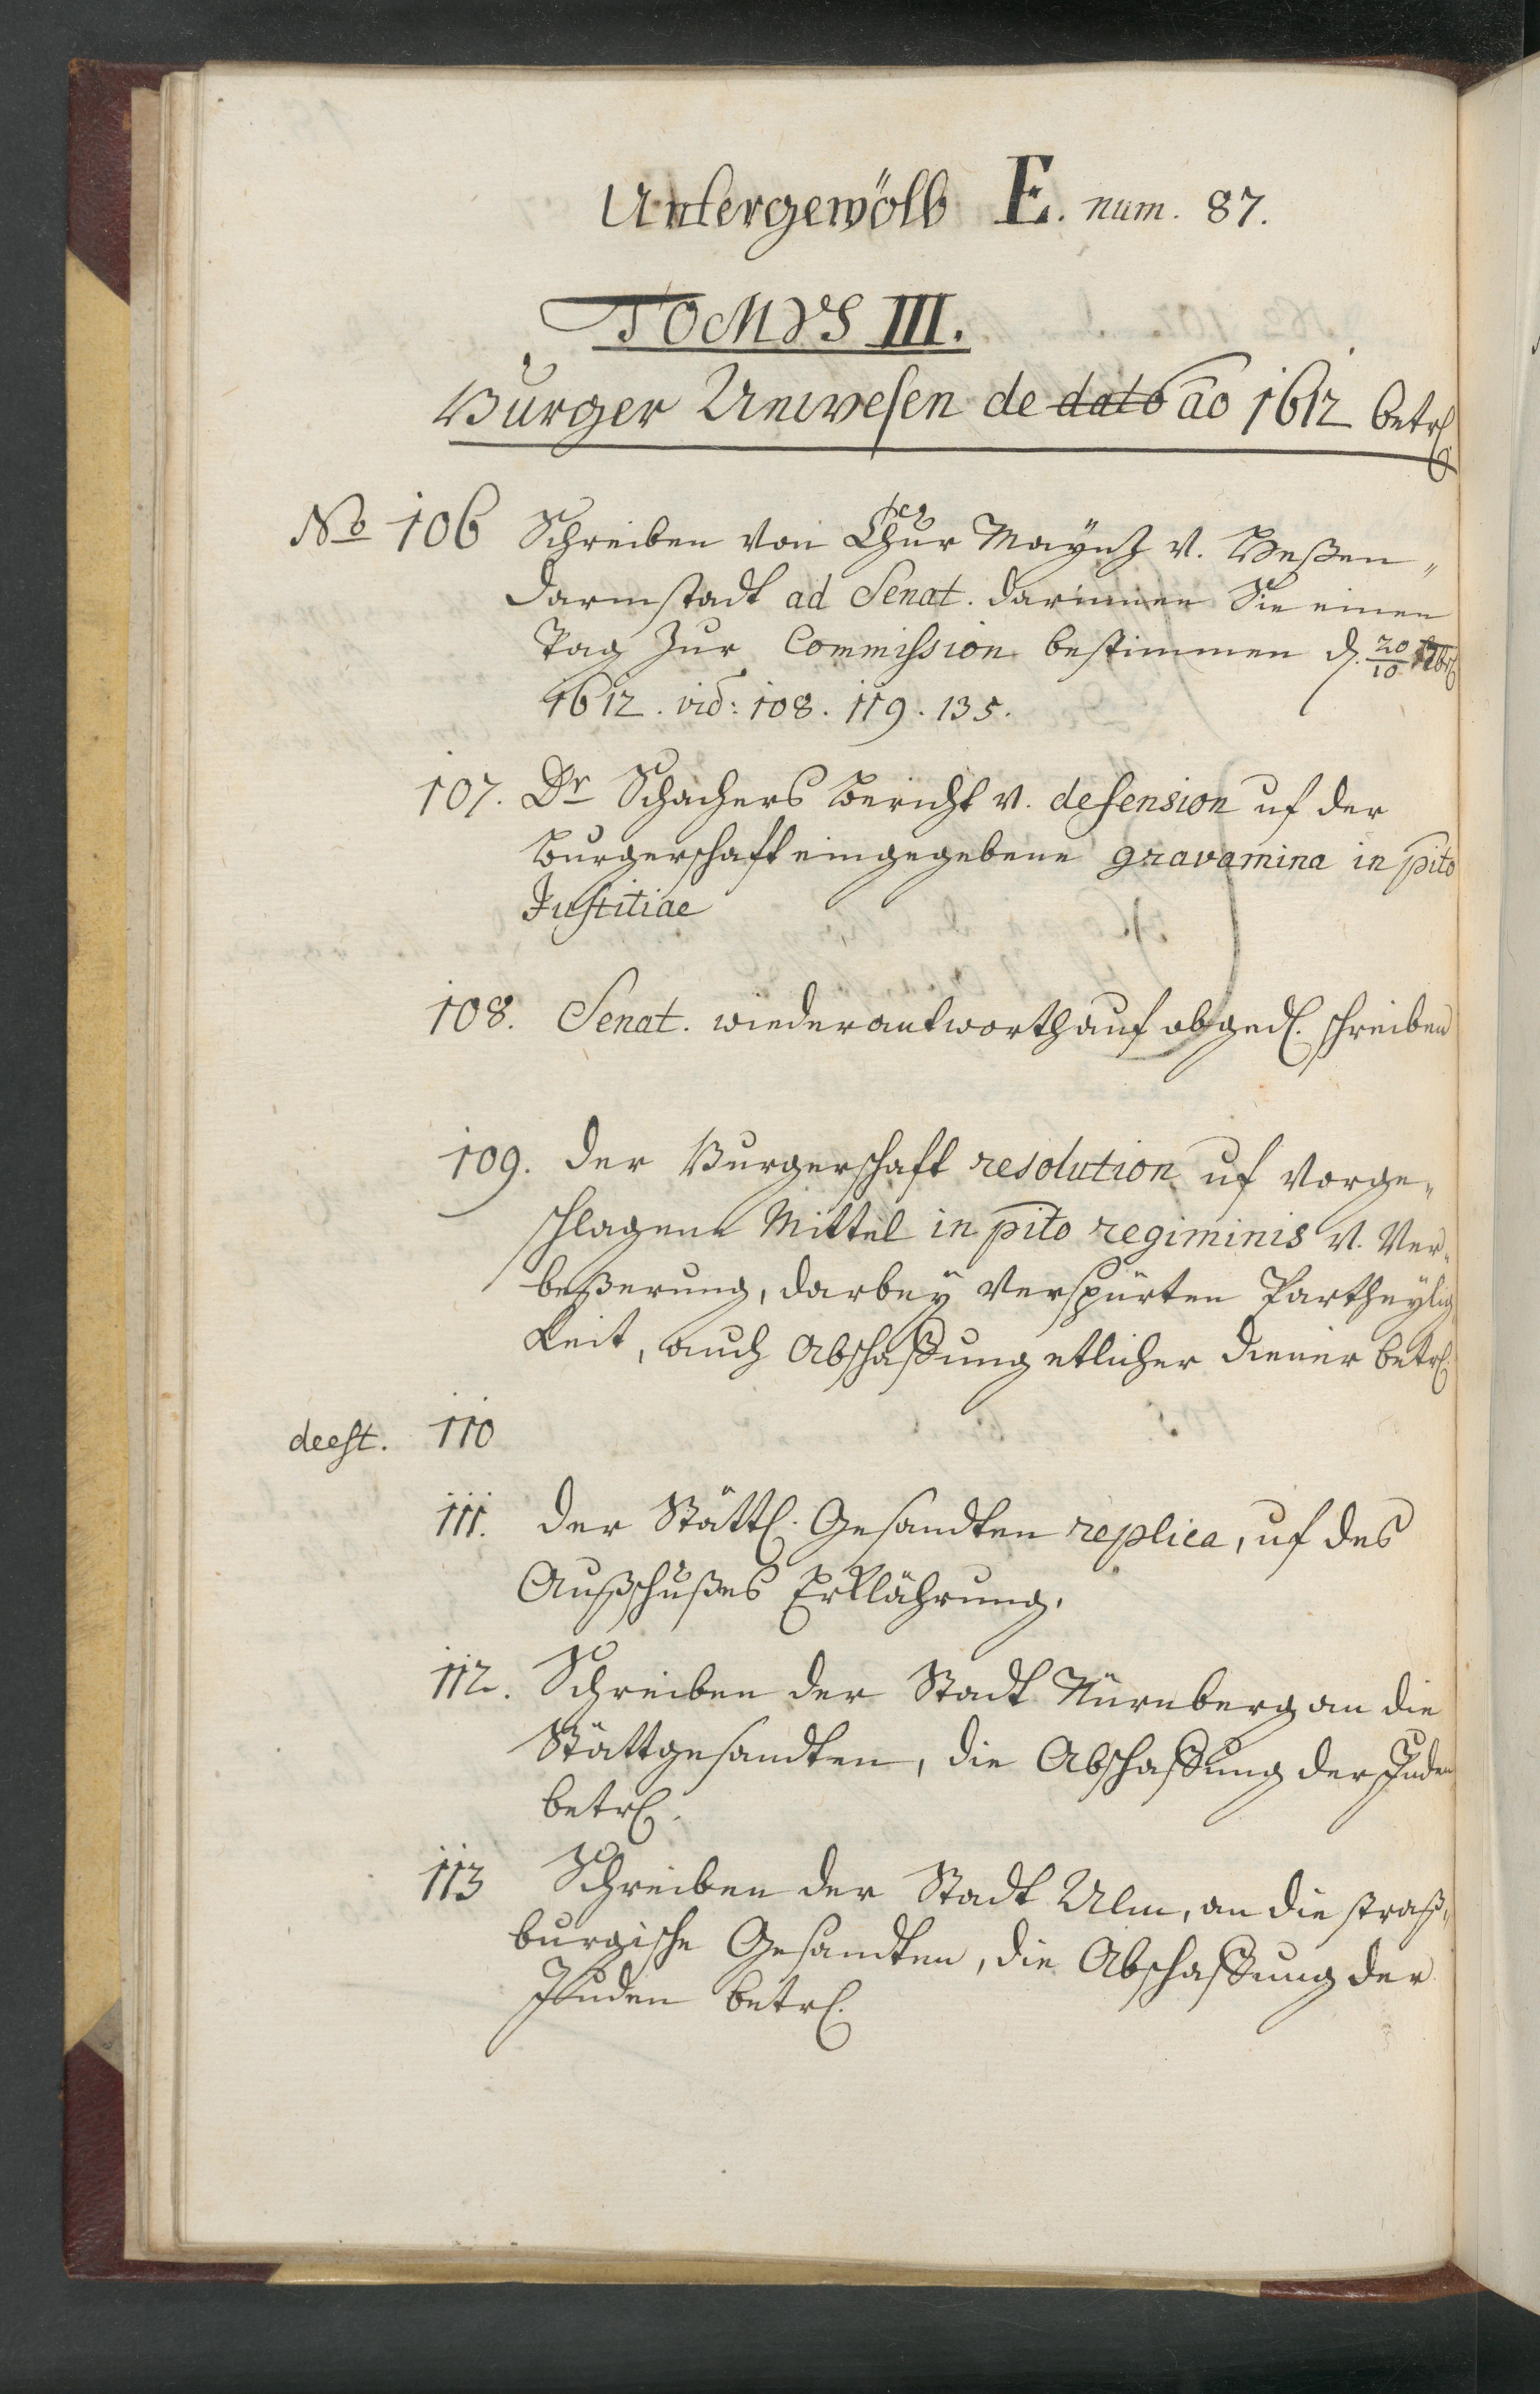 Untergewölb E. num. 87.
TOMVS III.
Burger Unwesen de dato ao 1612 betr.
No 106 Schreiben von Chur Maÿnz v. Heßen„
Darmstadt ad Senat. darinnen Sie einen
Tag zur Commission bestimmen d. 20/10
1612. vid: 108. 119. 135.
107. Dr Schachers Bericht v. defension uf der
Burgerschaft eingegebene gravamina in pcto
Justitiae
108. Senat. wiederantworth auf obged. schreiben
109. der Burgerschaft resolution uf vorge„
schlagene Mittel in pcto regiminis v. Ver„
beßerung, darbeÿ verspürten Partheÿlig
keit, auch Abschaffung etlicher diener betr.
deest. 110
111. der Stätt. Gesandten replica, uf des
Außschußes Erklährung.
112. Schreiben der Stadt Nürnberg an die
Stättgesandten, die Abschaffung der Juden
betr.
113 Schreiben der Stadt Ulm, an die straß„
burgische Gesandten, die Abschaffung der
Juden betr.